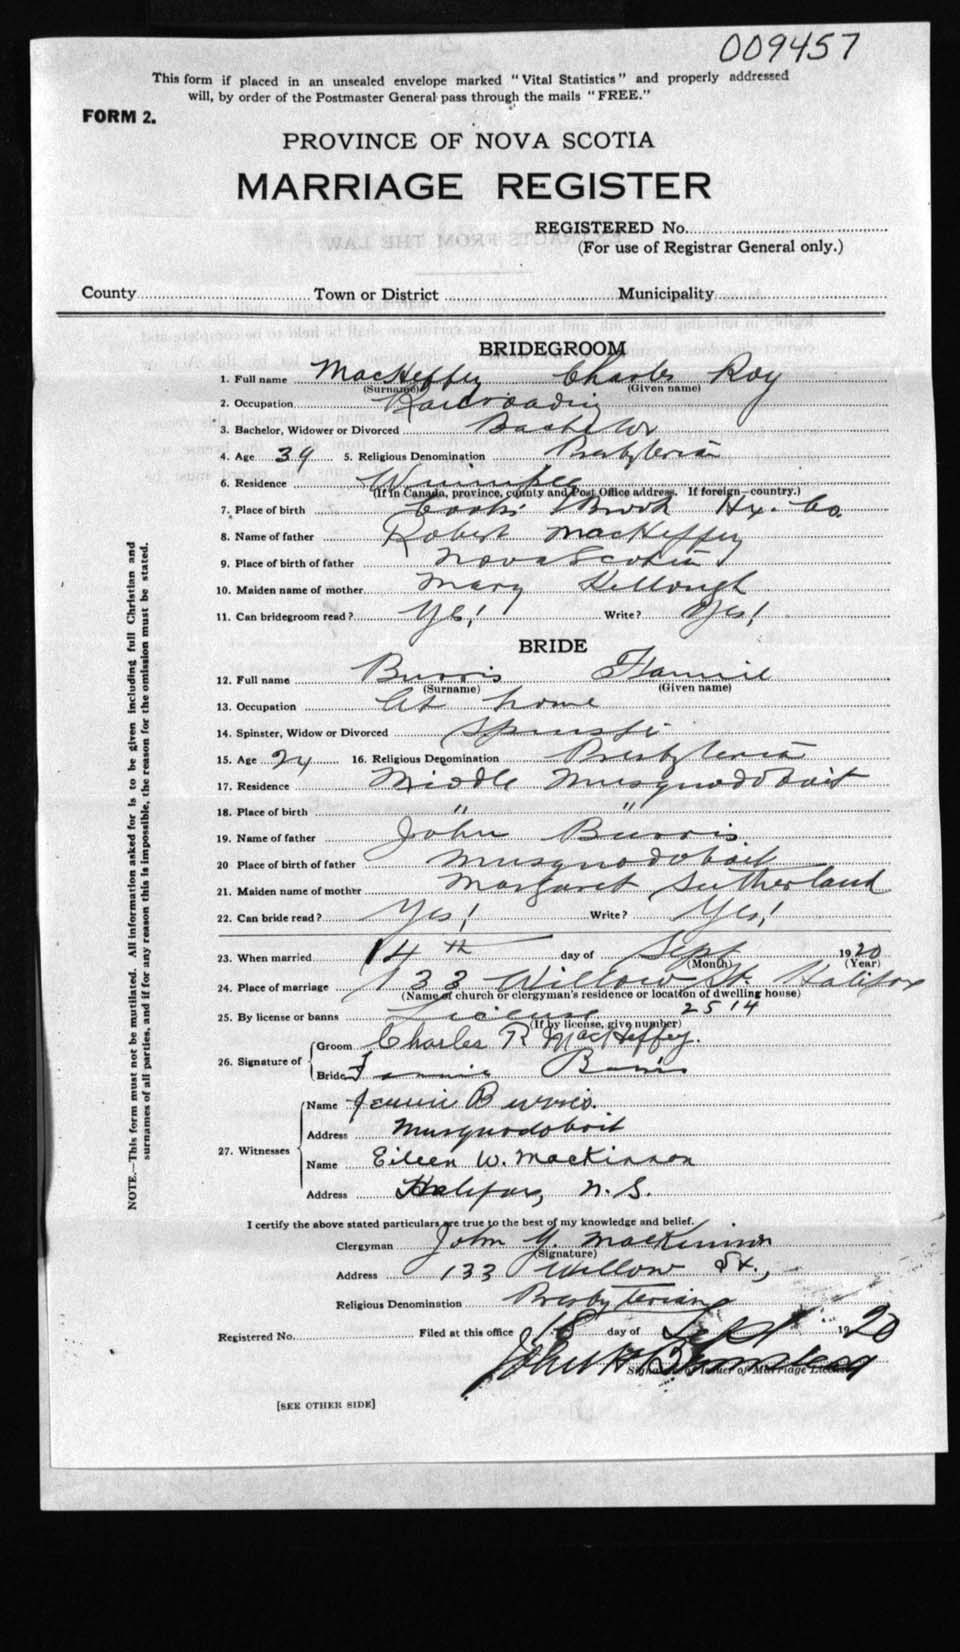 009457
This form if placed in an unsealed envelope marked "Vital Statistics" and properly addressed
will, by order of the Postmaster General pass through the mails "FREE."
FORM 2.
PROVINCE OF NOVA SCOTIA
MARRIAGE REGISTER
REGISTERED No.
(For use of Registrar General only.)
County Town or District Municipality
BRIDEGROOM
1. Full name MacKeffey Charles Roy
(Surname) (Given name)
2. Occupation Railroading
3. Bachelor, Widower or Divorced Bachelor
4. Age 39 5. Religious Denomination Presbyterian
6. Residence Winnipeg
(If in Canada, province, county and Post Office address. If foreign—country.)
7. Place of birth Cooks Brook Hx. Co.
8. Name of father Robert MacKeffey
9. Place of birth of father Nova Scotia
10. Maiden name of mother Mary Killough
11. Can bridegroom read? Yes! Write? Yes!
BRIDE
12. Full name Burris Fannie
(Surname) (Given name)
13. Occupation At home
14. Spinster, Widow or Divorced Spinster
15. Age 24 16. Religious Denomination Presbyterian
17. Residence Middle Musquodoboit
18. Place of birth " "
19. Name of father John Burris
20 Place of birth of father Musquodoboit
21. Maiden name of mother Margaret Sutherland
22. Can bride read? Yes! Write? Yes!
23. When married 14th day of Sept 1920
(Month) (Year)
24. Place of marriage 133 Willow St. Halifax
(Name of church or clergyman's residence or location of dwelling house)
25. By license or banns License 2514
(If by license, give number)
26. Signature of Groom Charles R MacKeffey.
Bride Fannie Burris
27. Witnesses Name Jennie Burris.
Address Musquodoboit
Name Eileen W. Mackinnon
Address Halifax, N. S.
I certify the above stated particulars are true to the best of my knowledge and belief.
Clergyman John Y. Mackinnon
(Signature)
Address 133 Willow St.,
Religious Denomination Presbyterian
Registered No. Filed at this office 18 day of Sept 1920
John H
Signature of Issuer of Marriage License
[SEE OTHER SIDE]
NOTE.—This form must not be mutilated. All information asked for is to be given including full Christian and
surnames of all parties, and if for any reason this is impossible, the reason for the omission must be stated.